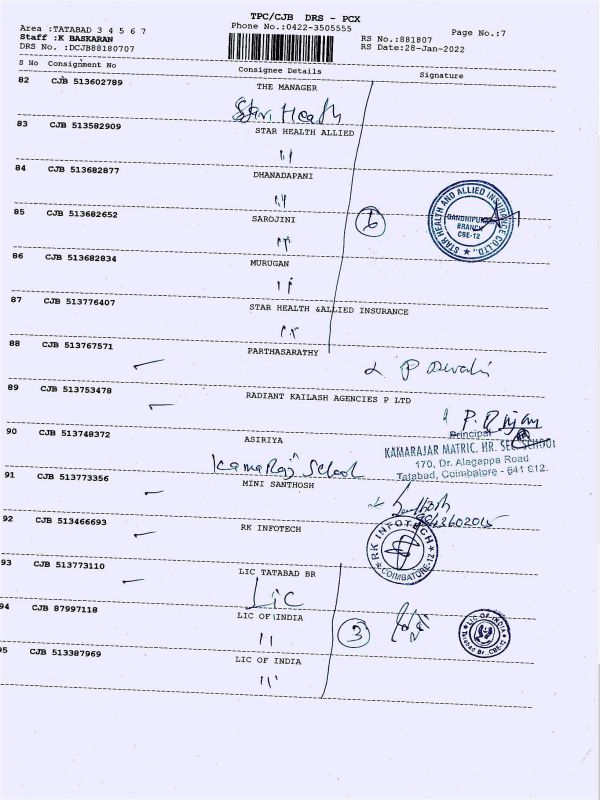 TPC/CJB DRS - PCX
Area :TATABAD 3 4 5 6 7
Phone No.:0422-3505555
Page No.:7
Staff :K BASKARAN
RS No.:881807
DRS No. :DCJB88180707
RS Date:28-Jan-2022
S No Consignment No Consignee Details Signature
82 CJB 513602789 THE MANAGER
Star Health
83 CJB 513582909 STAR HEALTH ALLIED
84 CJB 513682877 DHANADAPANI
85 CJB 513682652 SAROJINI
6
STAR HEALTH AND ALLIED INSURANCE CO.LTD.,
GANDHIPURAM
BRANCH
CBE-12
86 CJB 513682834 MURUGAN
87 CJB 513776407 STAR HEALTH &ALLIED INSURANCE
88 CJB 513767571 PARTHASARATHY
89 CJB 513753478 RADIANT KAILASH AGENCIES P LTD
90 CJB 513748372 ASIRIYA
Principal
KAMARAJAR MATRIC. HR. SEC. SCHOOL
170, Dr. Alagappa Road
Tatabad, Coimbatore - 641 012.
Kamaraj School
91 CJB 513773356 MINI SANTHOSH
92 CJB 513466693 RK INFOTECH
RK INFOTECH
COIMBATORE-12
93 CJB 513773110 LIC TATABAD BR
LIC
94 CJB 87997118 LIC OF INDIA
3
LIC OF INDIA
Tatabad Br., CBE-12
95 CJB 513387969 LIC OF INDIA